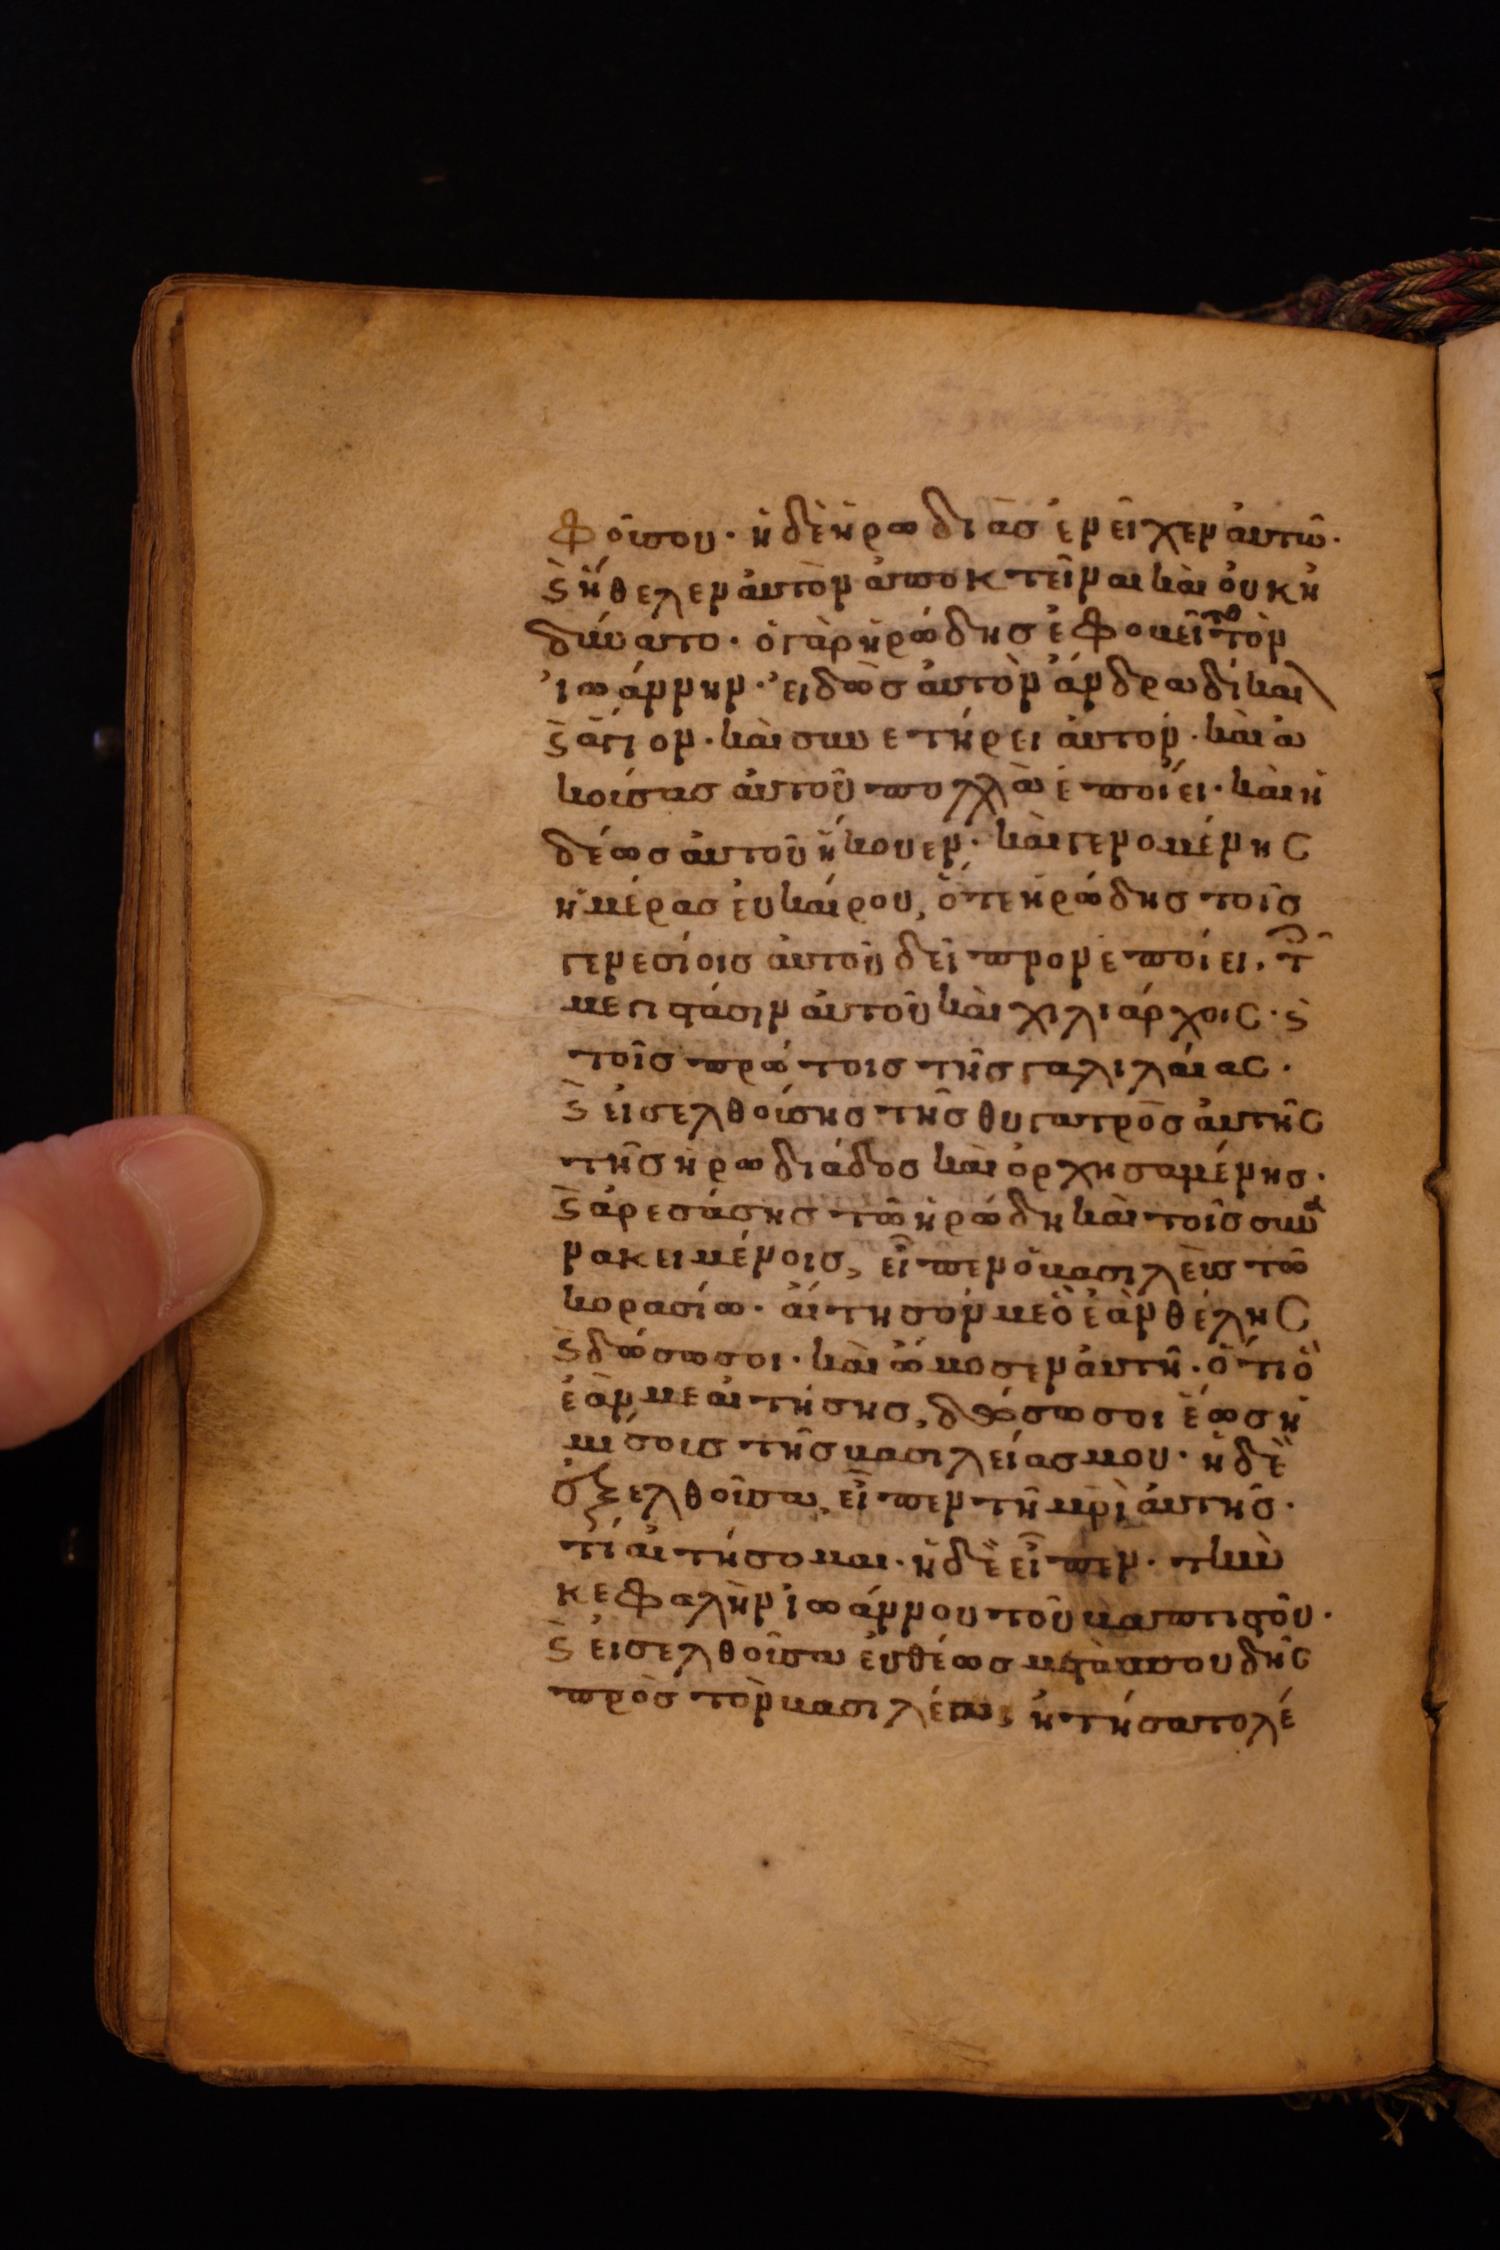 φοῦ σου· ἡ δὲ ἡρωδιὰσ ἐνεῖχεν ἀυτῶ·
ϛ ἤθελεν ἀυτὸν ἀποκτεῖναι καὶ ὀυκ ἠ
δύνατο· ὁ γὰρ ἡρώδησ ἐφοβεῖτο τὸν
ἰωάννην· ἐιδὼσ ἀυτὸν ἄνδρα δίκαι
ϛ ἅγιον· καὶ συνετήρει ἀυτόν· καὶ ἀ
κούσασ ἀυτοῦ πολλὰ ἐποίει· καὶ ἡ
δέωσ ἀυτοῦ ἤκουεν· καὶ γενομένησ
ἡμέρασ ἐυκαίρου, ὅτε ἡρώδησ τοῖσ
γενεσίοισ ἀυτοῦ δεῖπνον ἐποίει, τ
μεγιστάσιν ἀυτοῦ καὶ χιλιάρχοισ· ϛ
τοῖσ πρώτοισ τῆσ γαλιλάιασ·
ϛ ἐισελθούσησ τῆσ θυγατρὸσ ἀυτῆσ
τῆσ ἡρωδιάδοσ καὶ ὀρχησαμένησ·
ϛ ἀρεσάσησ τῶ ἡρώδη καὶ τοῖσ συνα
νακειμένοισ, εἶπεν ὁ βασιλεὺσ τῶ
κορασίω· ἄιτησόν με ὃ ἐὰν θέλησ
ϛ δώσω σοι· καὶ ὤμοσεν ἀυτῆ· ὅτι ὃ
ἐὰν με ἀιτήσησ, δώσω σοι ἕωσ ἡ
μίσουσ τῆσ βασιλείασ μου· ἡ δὲ
ἐξελθοῦσα, εἶπεν τῆ μρὶ ἀυτῆσ·
τί ἀιτήσομαι· ἡ δὲ εἶπεν· τὴν
κεφαλὴν ἰωάννου τοῦ βαπτιστοῦ·
ϛ ἐισελθοῦσα ἐυθέωσ μετὰ σπουδῆσ
πρὸσ τὸν βασιλέα, ἠτήσατο λέ